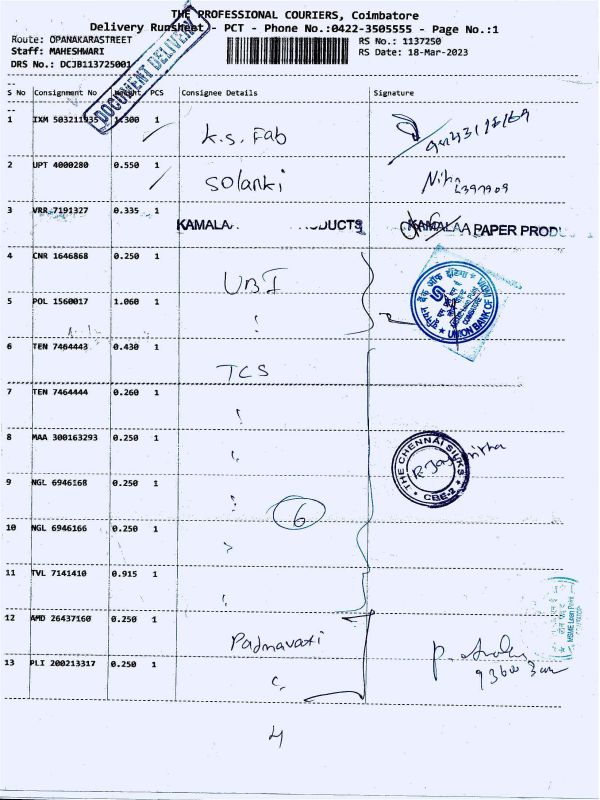 THE PROFESSIONAL COURIERS, Coimbatore
Delivery Runsheet - PCT - Phone No.:0422-3505555 - Page No.:1
Route: OPANAKARASTREET
Staff: MAHESHWARI
DRS No.: DCJB113725001
RS No.: 1137250
RS Date: 18-Mar-2023
DOCUMENT DELIVERY
S No Consignment No Weight PCS Consignee Details Signature
1 IXM 503211935 1.300 1 K.S. Fab
2 UPT 4000280 0.550 1 Solanki Nitin
3 VRR 7191327 0.335 1 KAMALA DUCTS KAMALAA PAPER PRODU
4 CNR 1646868 0.250 1 UBI
यूनियन बैंक ऑफ इंडिया UNION BANK OF COIMBATORE
5 POL 1560017 1.060 1
6 TEN 7464443 0.430 1 TCS
7 TEN 7464444 0.260 1
8 MAA 300163293 0.250 1
THE CHENNAI SILKS CBE-2
9 NGL 6946168 0.250 1
6
10 NGL 6946166 0.250 1
11 TVL 7141410 0.915 1
MSME Loan Point
12 AMD 26437160 0.250 1 Padmavati
13 PLI 200213317 0.250 1
4